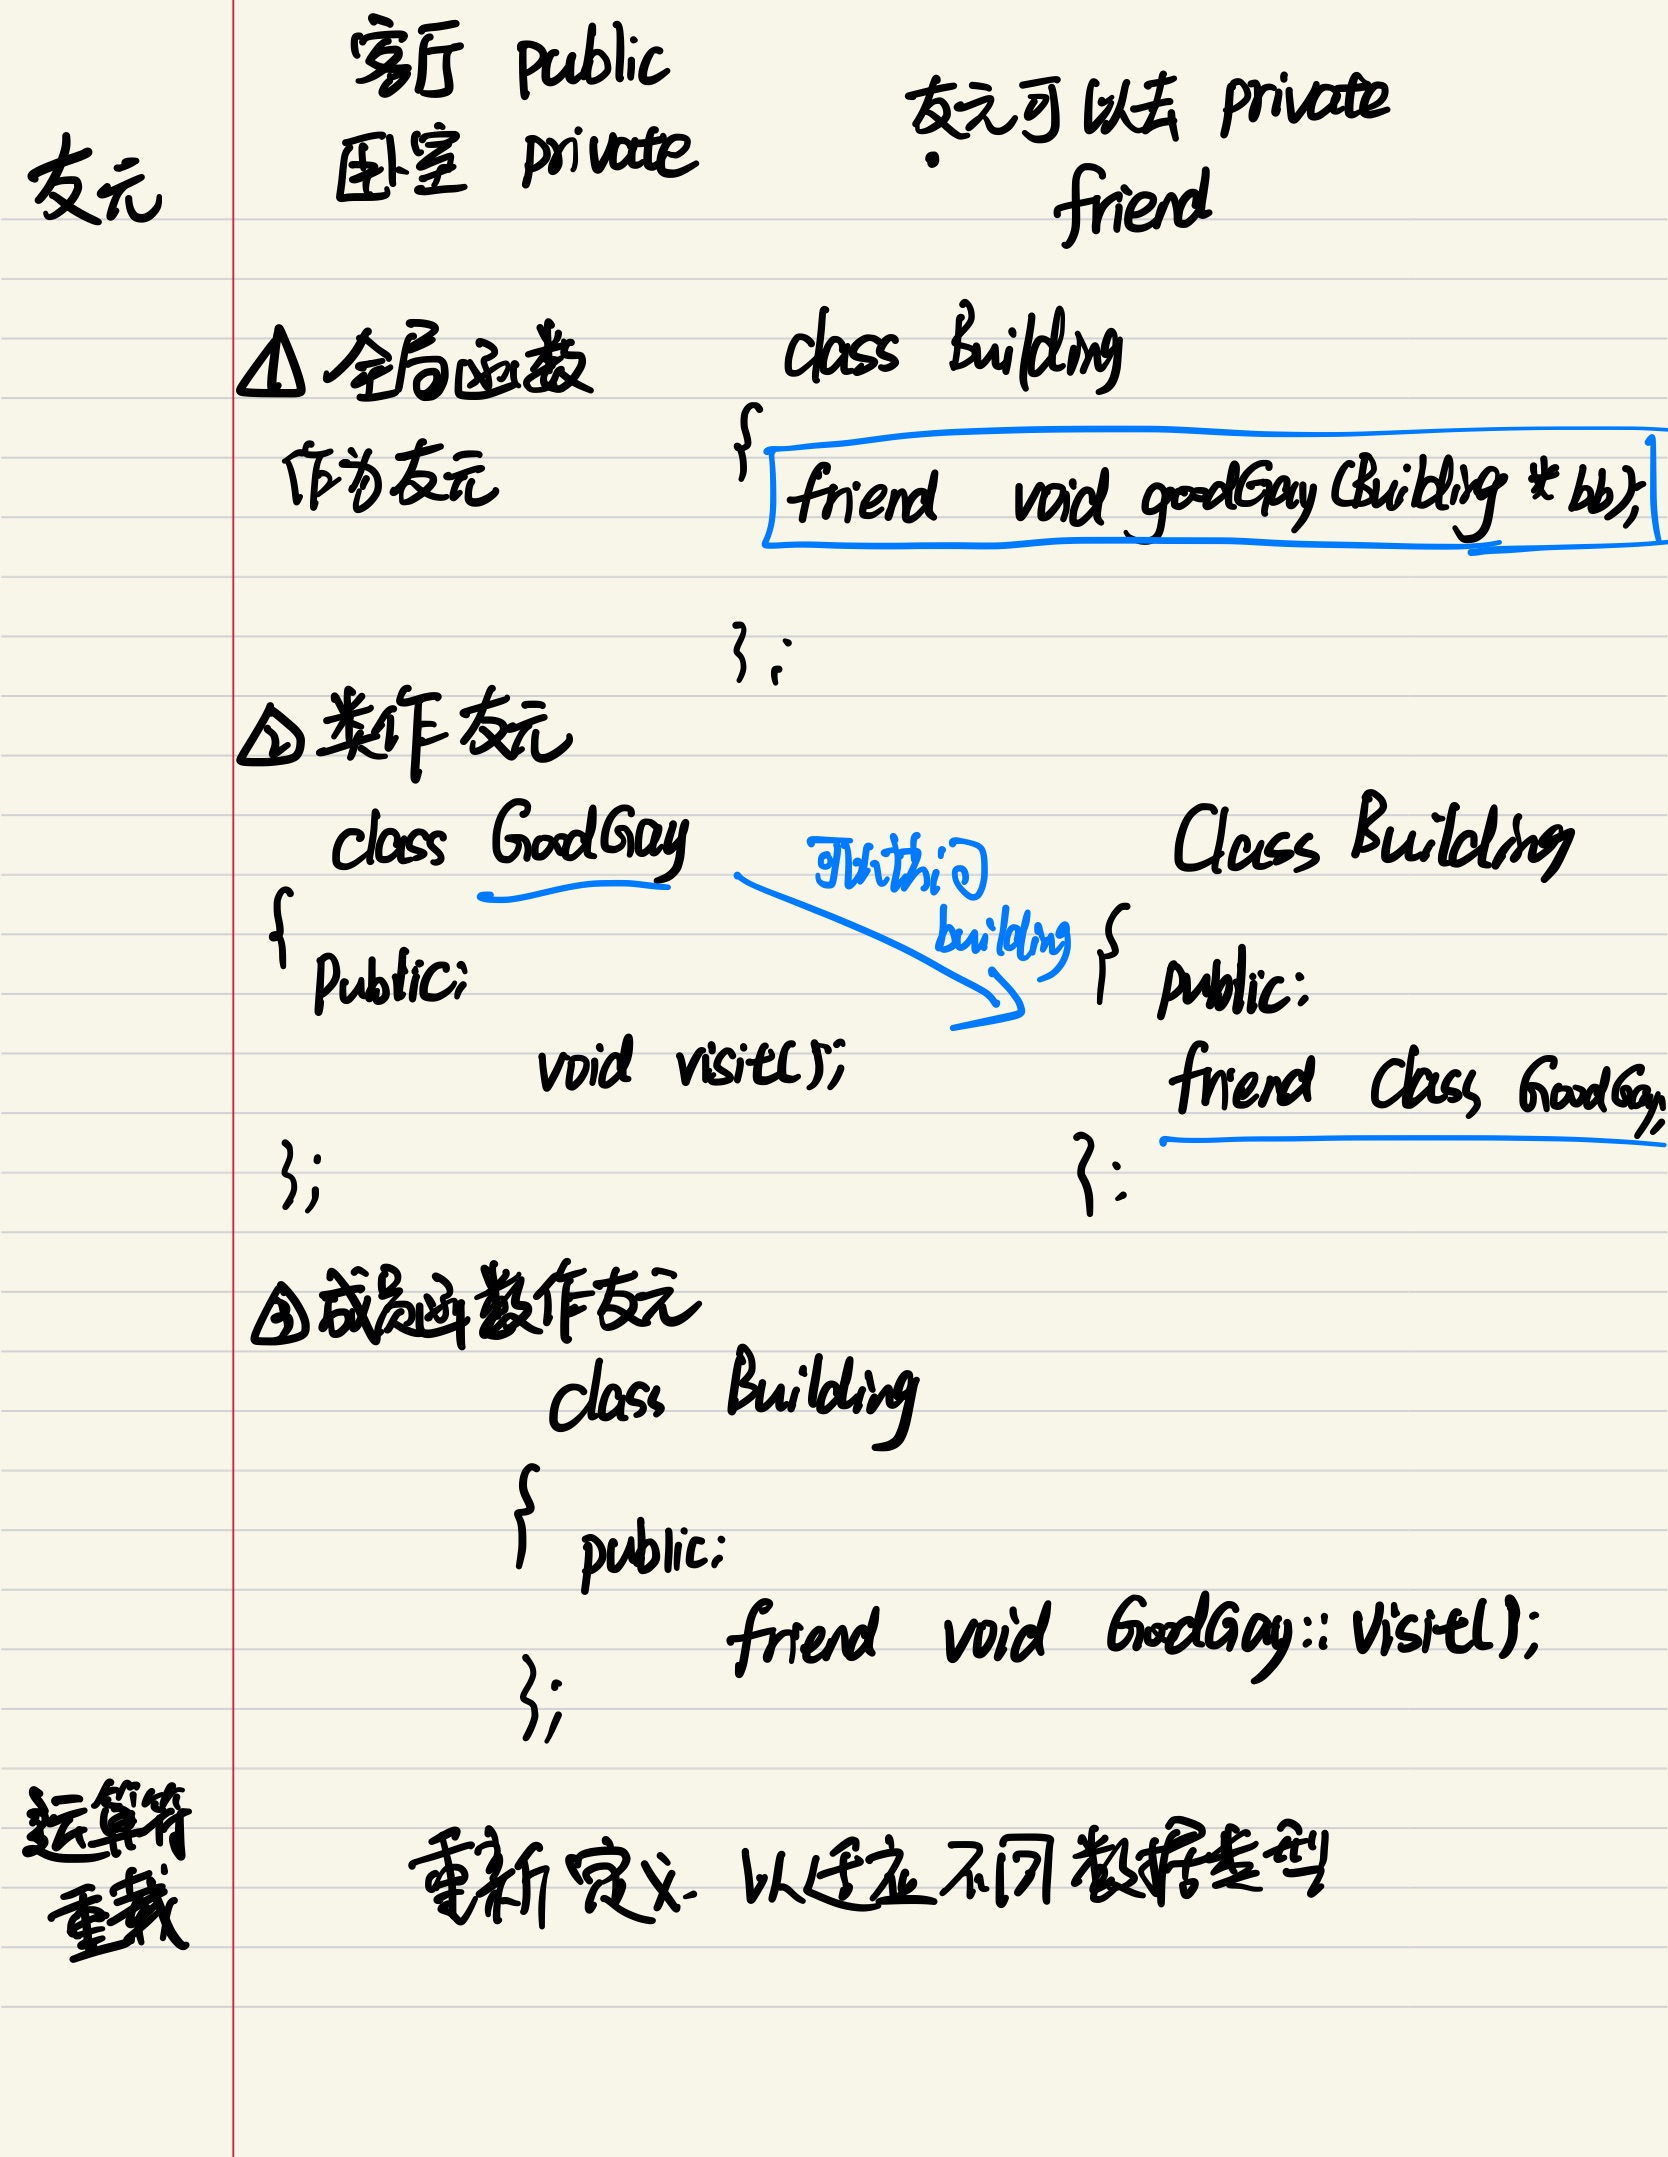 友元
客厅 public
卧室 private
友元可以去 private
friend
1 全局函数
作为友元
class Building
{
friend void goodGay(Building * bb);
};
2 类作友元
class GoodGay
{
Public:
void visit();
};
可以访问
building
Class Building
{
public:
friend Class GoodGay;
};
3 成员函数作友元
class Building
{
public:
friend void GoodGay::Visit();
};
运算符
重载
重新定义. 以适应不同数据类型